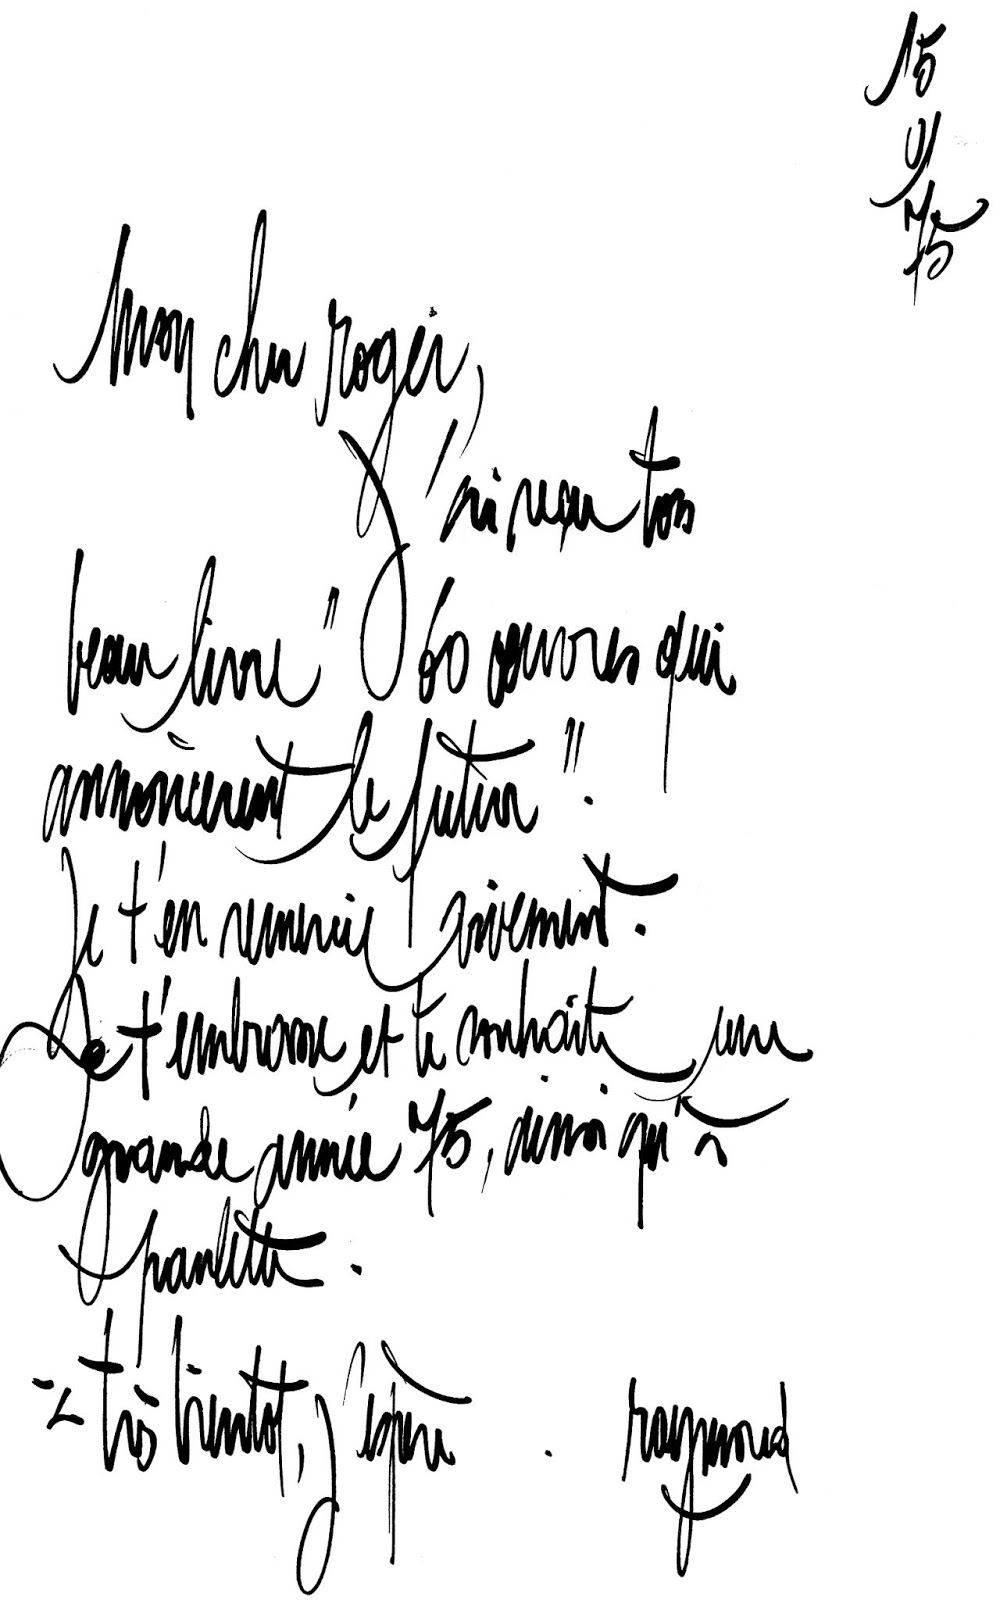 15
01
75
Mon cher Roger,
J'ai reçu ton
beau livre "60 oeuvres qui
annoncèrent le futur".
Je t'en remercie vivement.
Je t'embrasse et te souhaite une
grande année 75, ainsi qu'à
paulette.
à très bientot, j'espère. raymond